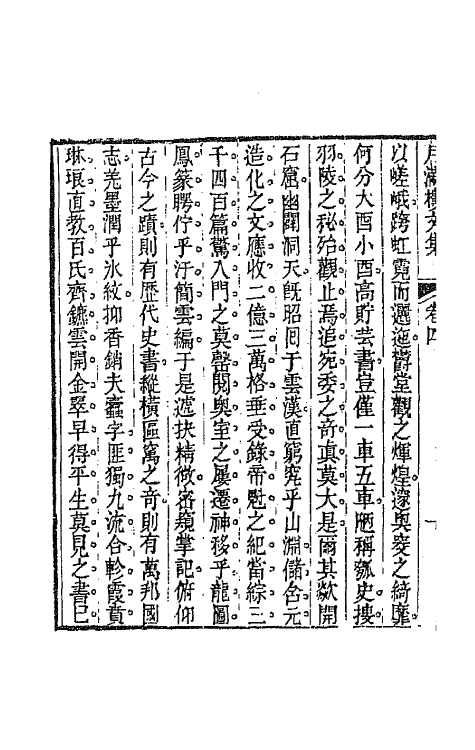 月滿樓文集 卷四
以嵯峨跨虹霓而邐迤爵堂觀之煇煌邃奥窔之綺靡
何分大酉小酉高貯芸書豈僅一車五車陋稱瓠史搜
羽陵之秘殆觀止焉追宛委之奇眞莫大是爾其欻開
石窟幽闢洞天旣昭囘于雲漢直窮究乎山淵儲名元
造化之文應收二億三萬格垂受錄帝魁之紀當綜三
千四百篇驚入門之莫罄閱奥室之屢遷神移乎龍圖
鳳篆聘佇乎汗簡雲編于是遞抉精微密窺掌記俯仰
古今之蹟則有歴代史書縱橫區寓之奇則有萬邦國
志羌墨潤乎氷紋抑香銷夫蠹字匪獨九流合軫霞賁
琳琅直教百氏齊鑣雲開金翠早得平生莫見之書已